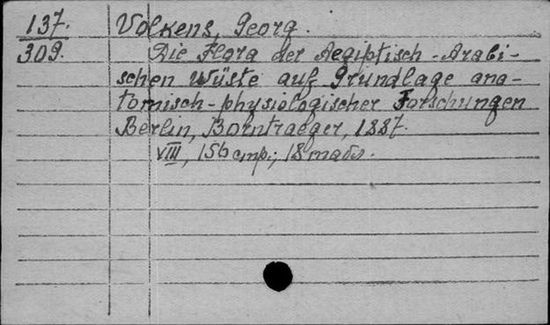 137. Volkens, Georg.
309. Die Flora der Aegiptisch-Arabi-
schen Wüste auf Grundlage ana-
tomisch-physiologischer Forschungen
Berlin, Borntraeger, 1887.
VIII, 156 стр.; 18 табл.